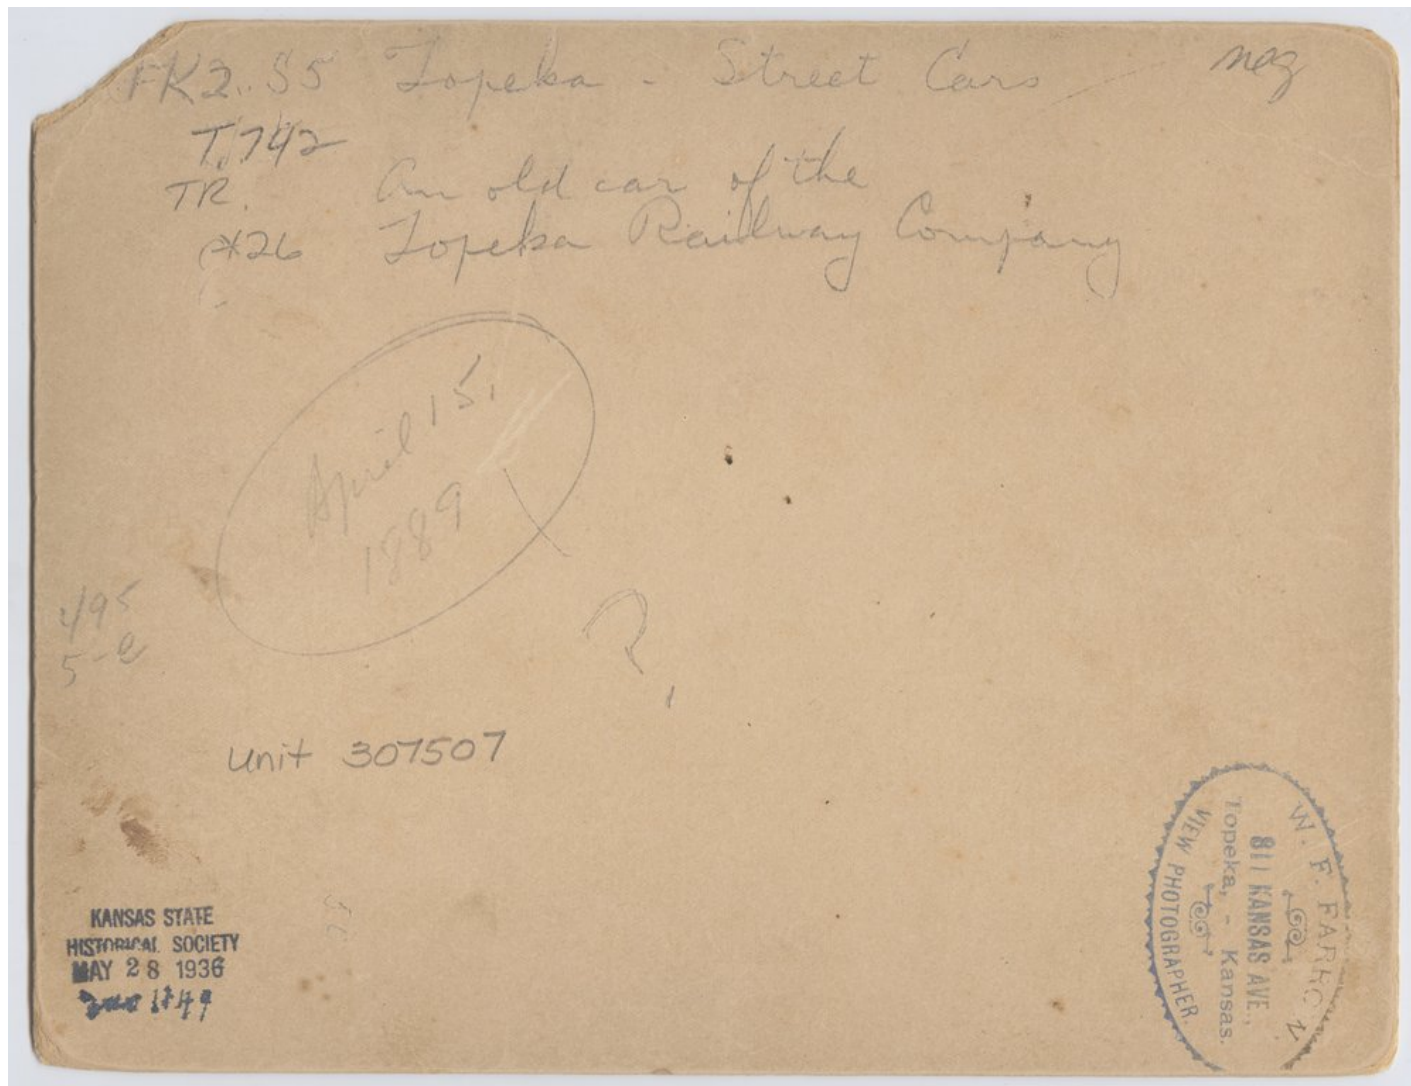 FK2. S5 Topeka - Street Cars neg
T.742
TR. An old car of the
*26 Topeka Railway Company
April 15,
1889
?
495
5-e
Unit 307507
KANSAS STATE
HISTORICAL SOCIETY
MAY 28 1936
W. F. FARROW
811 KANSAS AVE.,
Topeka, - Kansas.
VIEW PHOTOGRAPHER.